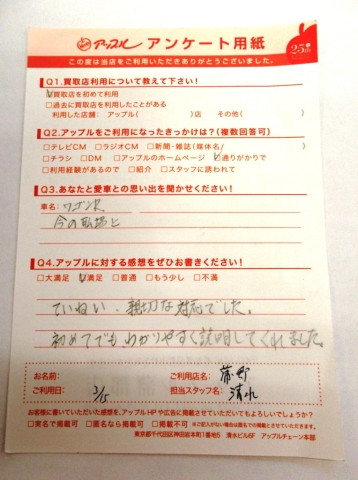 アップル アンケート用紙 25th
この度は当店をご利用いただきありがとうございました。
Q1.買取店利用について教えて下さい!
☑買取店を初めて利用
□過去に買取店を利用したことがある
利用した店舗: アップル( )店 その他( )
Q2.アップルをご利用になったきっかけは?(複数回答可)
□テレビCM □ラジオCM □新聞・雑誌(媒体名/ )
□チラシ □DM □アップルのホームページ ☑通りがかりで
□利用経験があるので □紹介 □スタッフに誘われて
Q3.あなたと愛車との思い出を聞かせください!
車名: ワゴンR
今の職場と
Q4.アップルに対する感想をぜひお書きください!
□大満足 ☑満足 □普通 □もう少し □不満
ていねい、親切な対応でした。
初めてでもわかりやすく説明してくれました。
お名前: ご利用店名: 蒲郡
ご利用日: 3/15 担当スタッフ名: 清水
お客様に書いていただいた感想を、アップルHPや広告に掲載させていただいてもよろしいでしょうか?
□実名で掲載可 □匿名なら掲載可 □掲載不可 ※ご記入がない場合は匿名での掲載とさせていただきます。
東京都千代田区神田岩本町1番地5 清水ビル6F アップルチェーン本部